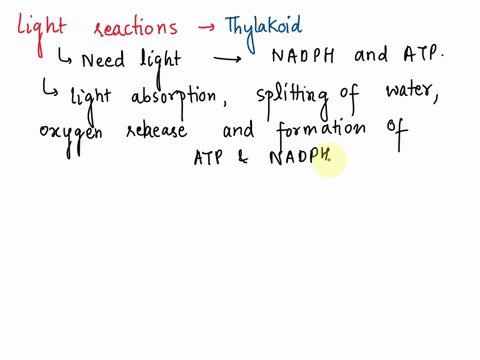 Light reactions → Thylakoid
↳ Need light → NADPH and ATP.
↳ light absorption, splitting of water,
oxygen release and formation of
ATP & NADPH.